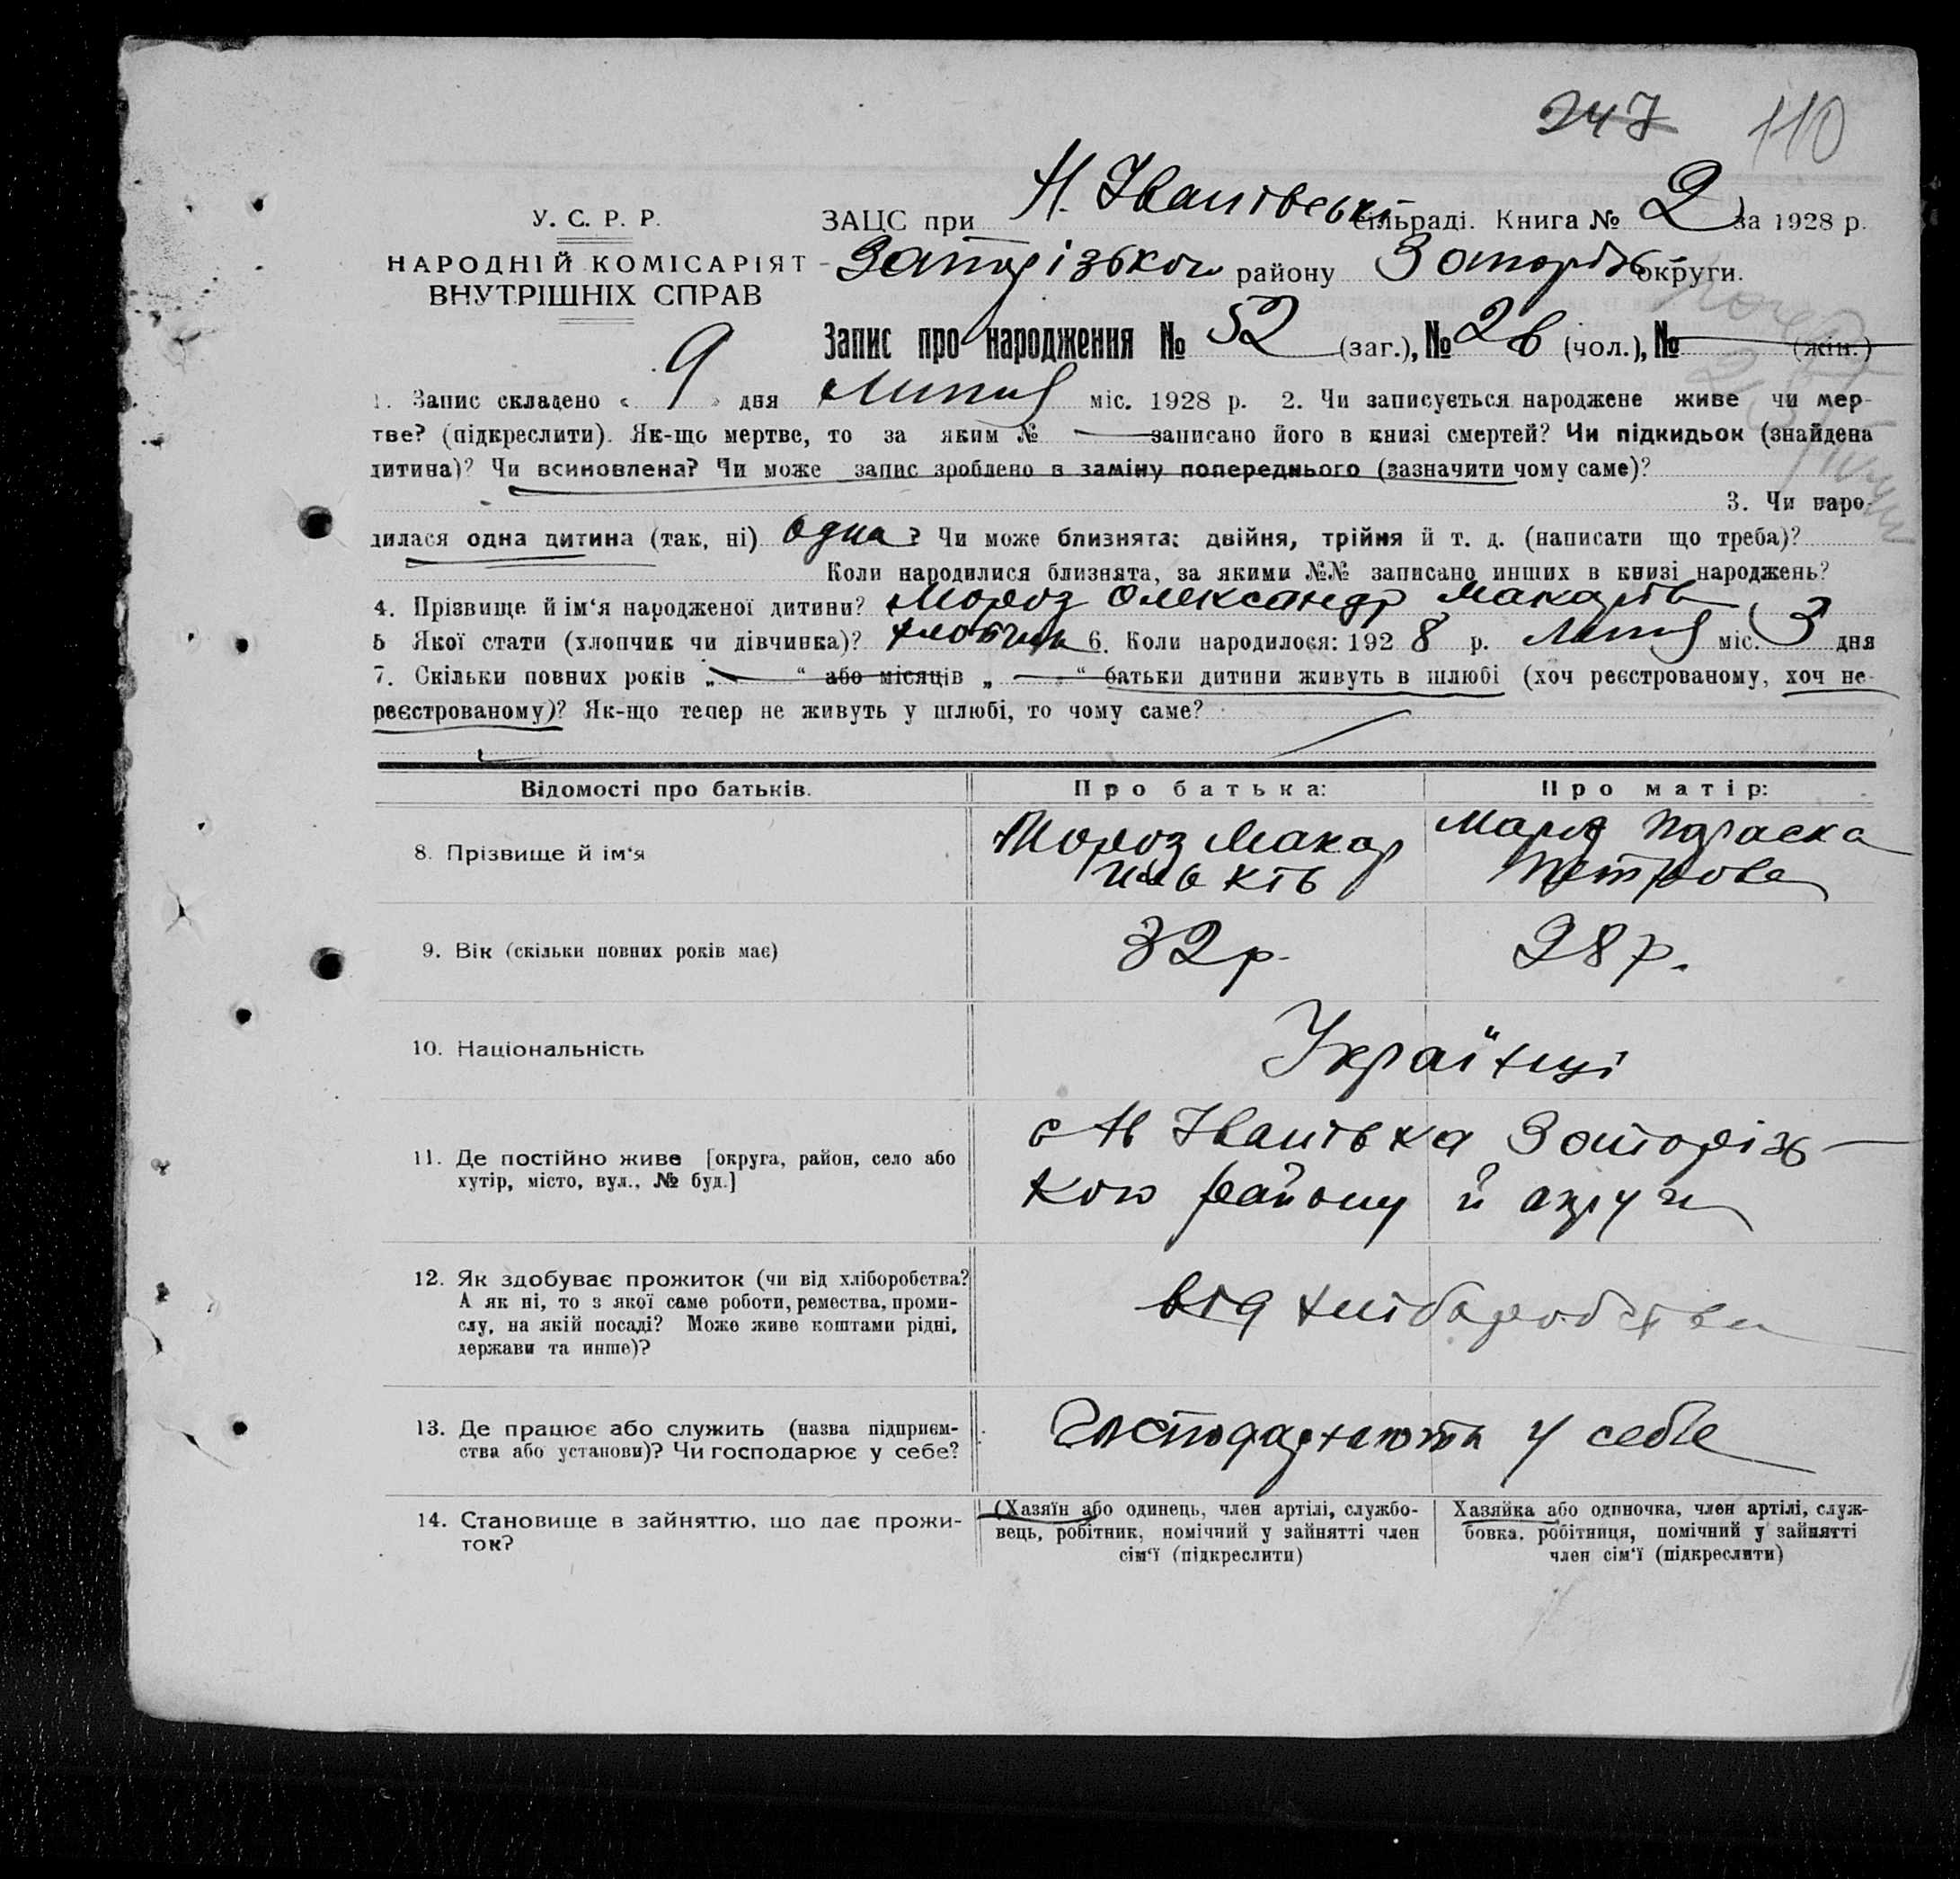 247 110
У. С. Р. Р.
НАРОДНІЙ КОМІСАРІЯТ
ВНУТРІШНІХ СПРАВ
ЗАЦС при Н. Іванівськ сільраді. Книга № 2 за 1928 р.
Запорізького району Запоріз округи.
Запис про народження № 52 (заг.), № 26 (чол.), № (жін.)
1. Запис складено « 9 » дня Липня міс. 1928 р. 2. Чи записується народжене живе чи мер-
тве? (підкреслити). Як-що мертве, то за яким № записано його в книзі смертей? Чи підкидьок (знайдена
дитина)? Чи всиновлена? Чи може запис зроблено в заміну попереднього (зазначити чому саме)?
3. Чи наро-
дилася одна дитина (так, ні) одна? Чи може близнята: двійня, трійня й т. д. (написати що треба)?
Коли народилися близнята, за якими №№ записано инших в книзі народжень?
4. Прізвище й ім‘я народженої дитини? Мороз Олександр Макарів
5 Якої стати (хлопчик чи дівчинка)? хлопчик 6. Коли народилося: 1928 р. Липня міс. 3 дня
7. Скільки повних років „ “ або місяців „ “ батьки дитини живуть в шлюбі (хоч реєстрованому, хоч не-
реєстрованому)? Як-що тепер не живуть у шлюбі, то чому саме?
Відомості про батьків. Про батька: Про матір:
8. Прізвище й ім‘я Мороз Макар Мороз Параска
Петрова
9. Вік (скільки повних років має) 32 р. 28 р.
10. Національність Українці
11. Де постійно живе [округа, район, село або
хутір, місто, вул., № буд.]
с Н Іванівка Запоріз-
кого району й округи
12. Як здобуває прожиток (чи від хліборобства?
А як ні, то з якої саме роботи, ремества, проми-
слу, на якій посаді? Може живе коштами рідні,
держави та инше)?
від хліборобства
13. Де працює або служить (назва підприєм-
ства або установи)? Чи господарює у себе?
Господарюють у себе
14. Становище в зайняттю, що дає прожи-
ток?
(Хазяїн або одинець, член артілі, службо-
вець, робітник, помічний у зайнятті член
сім‘ї (підкреслити)
Хазяйка або одиночка, член артілі, служ-
бовка, робітниця, помічний у зайнятті
член сім‘ї (підкреслити)